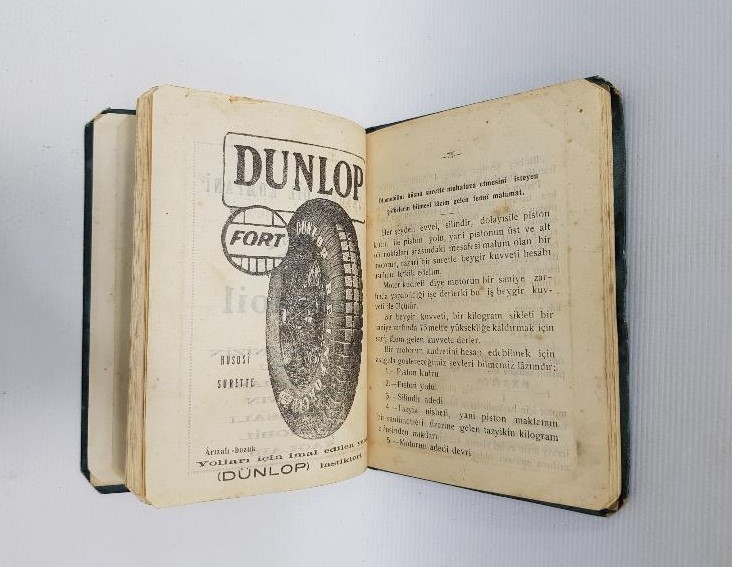 DUNLOP
FORT
DUNLOP
HUSUSİ
SURETTE
Arızalı-bozuk
Yolları için imal edilen
(DÜNLOP) lastikleri
Otomobilini hüsnü suretle muhafaza etmesini isteyen
bilmesi lâzım gelen fennî malumat.
Her şeyden evvel, silindir, dolayısile piston
kutru ile piston yolu yani pistonun üst ve alt
noktaları arasındaki mesafesi malum olan bir
motorun, nazarî bir suretle beygir kuvveti hesabı
edelim.
Motor kudreti diye motorun bir saniye zar-
fında yapabildiği işe derlerki bu iş beygir kuv-
veti ile ölçülür.
bir beygir kuvveti, bir kilogram sikleti bir
saniye zarfında 75 metre yüksekliğe kaldırmak için
lâzım gelen kuvvete derler.
Bir motorun kudretini hesap edebilmek için
aşağıda göstereceğimiz şeyleri bilmemiz lâzımdır:
1.- Piston kutru
2.- Piston yolu
3.- Silindir adedi
4.- Tazyik nisbeti, yani piston makramın
bir santimetresi üzerine gelen tazyikin kilogram
mikdarı
5.- Motorun adedi devri